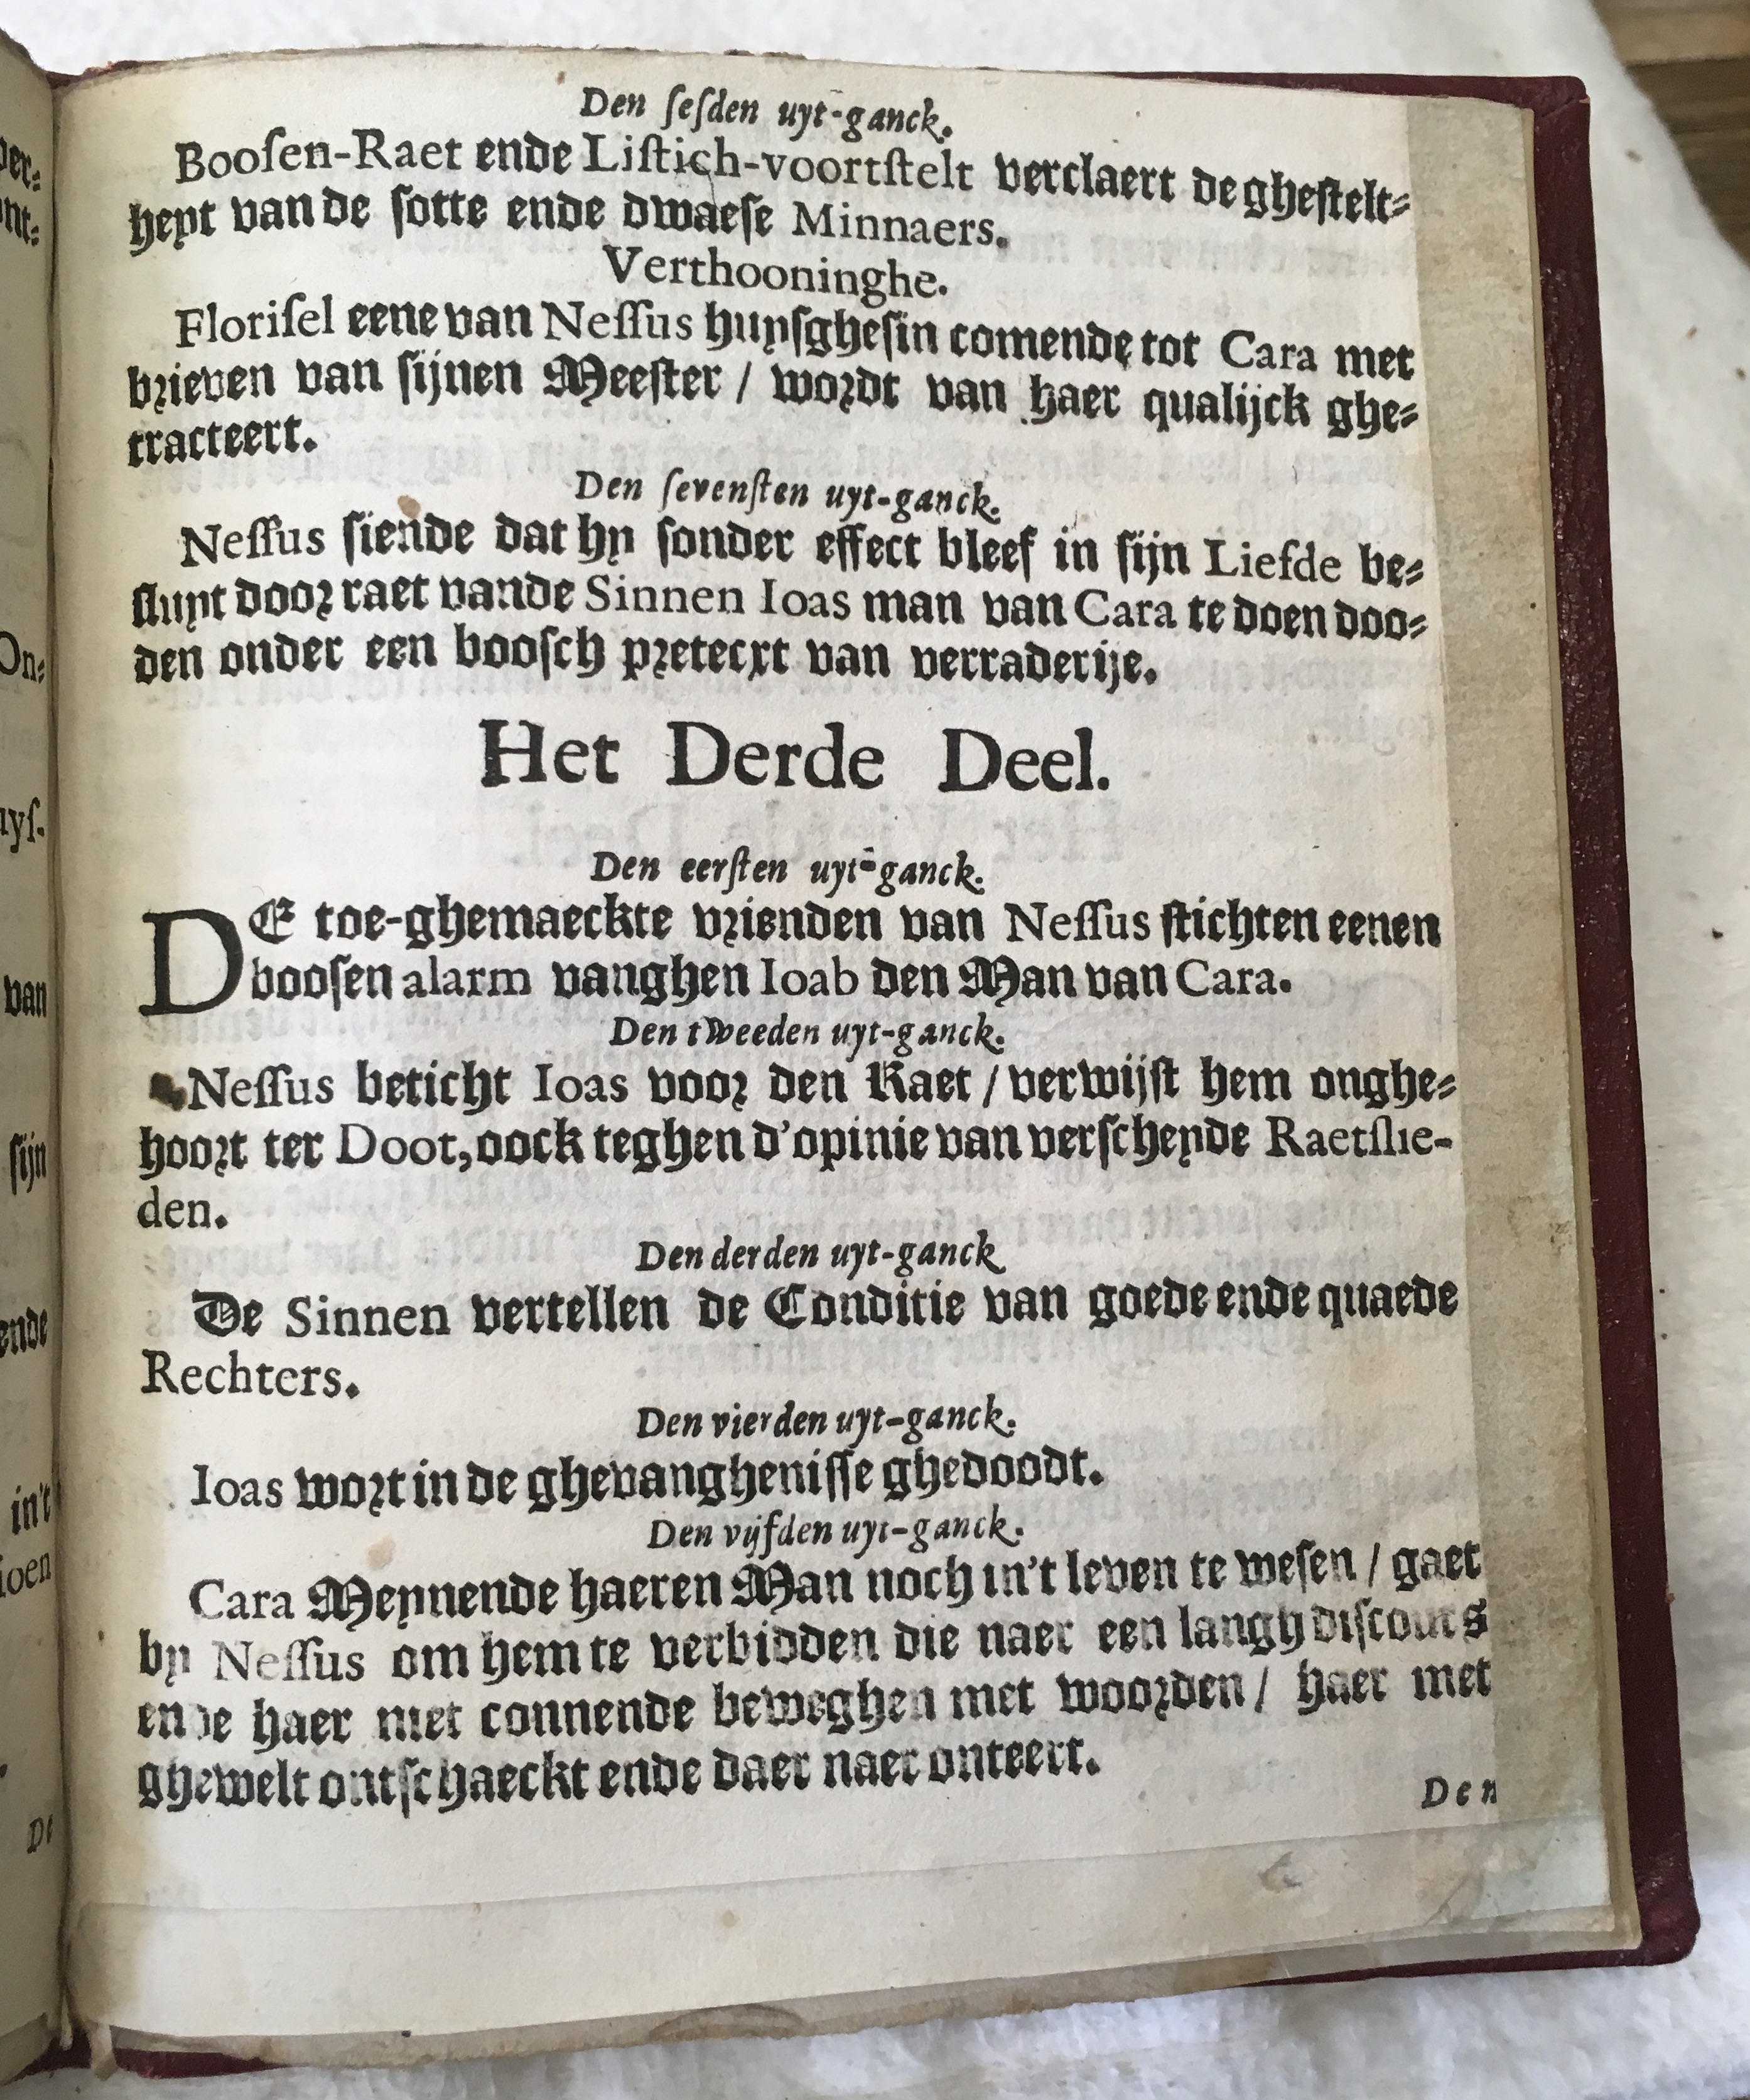 Den sesden uyt-ganck.
Boosen-Raet ende Listich-voortstelt verclaert de ghestelt-
heyt van de sotte ende dwaese Minnaers.
Verthooninghe.
Florisel eene van Nessus huysghesin comende tot Cara met
brieven van sijnen Meester / wordt van haer qualijck ghe-
tracteert.
Den sevensten uyt-ganck.
Nessus siende dat hy sonder effect bleef in sijn Liefde be-
sluyt door raet vande Sinnen Ioas man van Cara te doen doo-
den onder een boosch pretecxt van verraderije.
Het Derde Deel.
Den eersten uyt-ganck.
DE toe-ghemaeckte vrienden van Nessus stichten eenen
boosen alarm vanghen Ioab den Man van Cara.
Den tweeden uyt-ganck.
Nessus beticht Ioas voor den Raet / verwijst hem onghe-
hoort ter Doot, oock teghen d'opinie van verscheyde Raetslie-
den.
Den derden uyt-ganck
De Sinnen vertellen de Conditie van goede ende quaede
Rechters.
Den vierden uyt-ganck.
Ioas wort in de ghevanghenisse ghedoodt.
Den vijfden uyt-ganck.
Cara Meynende haeren Man noch in't leven te wesen / gaet
by Nessus om hem te verbidden die naer een langh discours
ende haer niet connende beweghen met woorden / haer met
ghewelt ontschaeckt ende daer naer onteert.
Den
ver-
nt-
On-
uys.
van
sijn
ende
in't
ioen